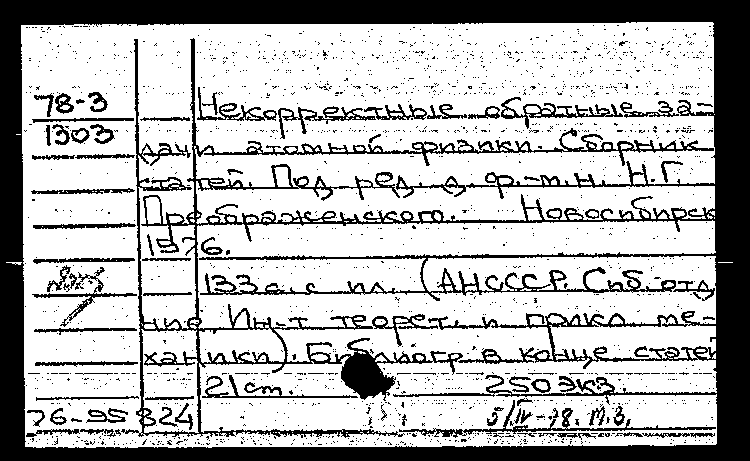 78-3 Некорректные обратные за-
1303
дачи атомной физики. Сборник
статей. Под ред. д. ф.-м.н. Н.Г.
Преображенского. Новосибирск
1976.
133 с. с ил. (АНСССР. Сиб. отд
ние. Ин-т теорет. и прикл ме-
ханики). Библиогр в конце статей
21 cm. 250 экз.
76-95824 5/IV-78. М.З.